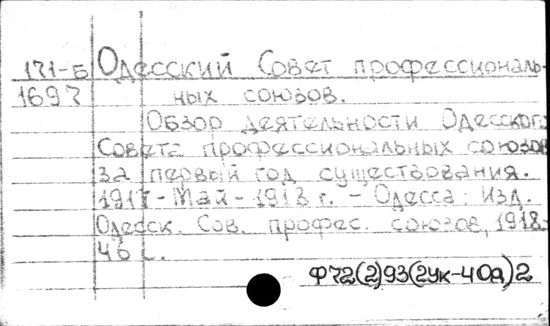 171-Б Одесский Совет профессиональ-
1697 ных союзов.
Обзор деятельности Одесского
Совета профессиональных союзов
за первый год существования.
1917 - Май - 1918 г. - Одесса: Изд.
Одесск. Сов. профес. союзов, 1918.-
46 с.
Ф72(2)93(2Ук-4Од)2